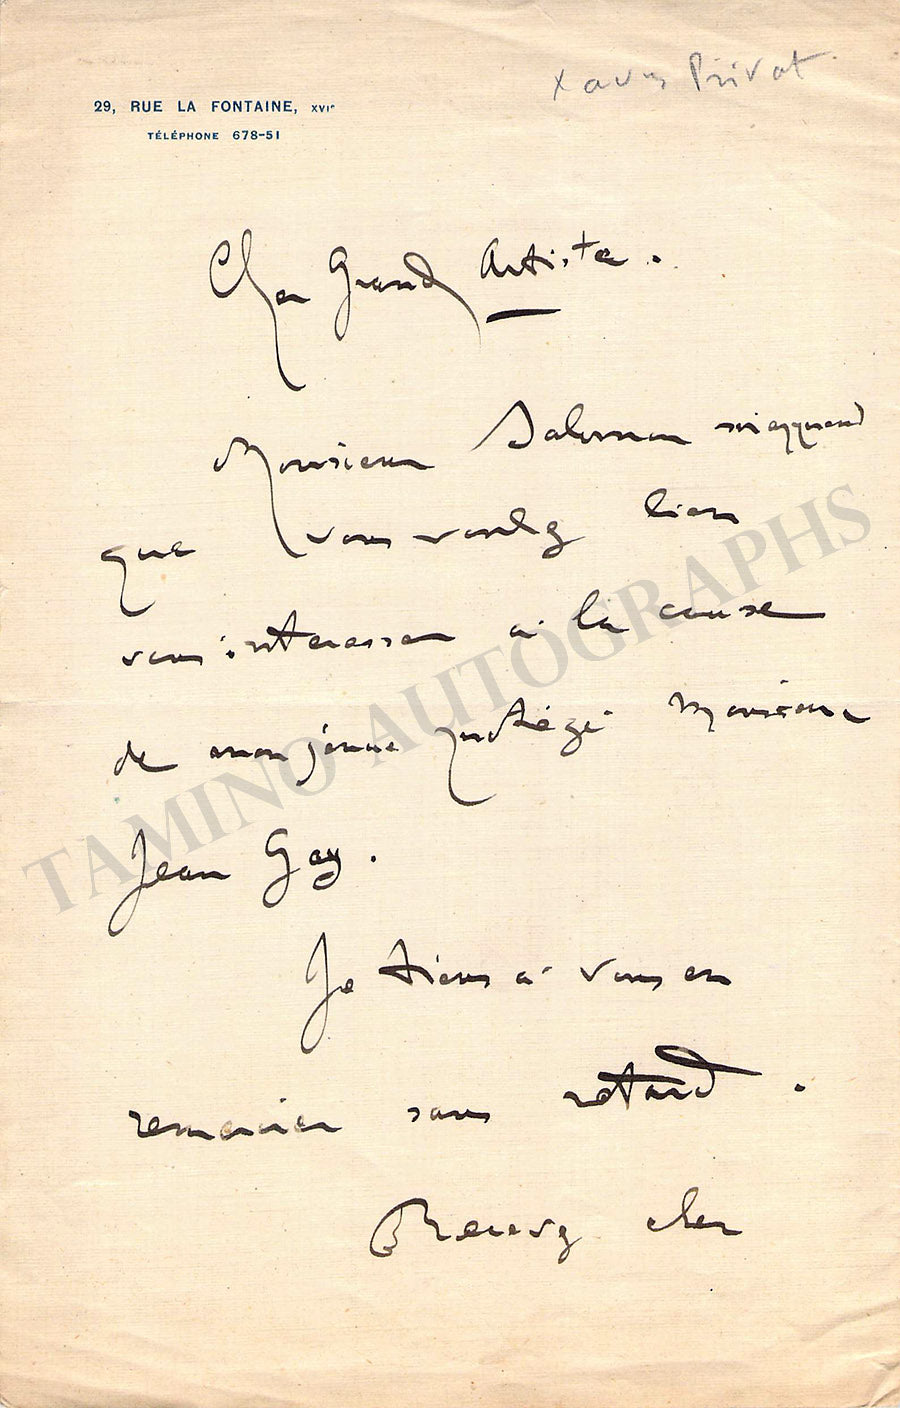 Xavier Privat.
29, RUE LA FONTAINE, XVIe
TÉLÉPHONE 678-51
Cher Grand Artiste.
Monsieur Salomon m'apprend
que vous voulez bien
vous intéresser à la cause
de mon jeune protégé Monsieur
Jean Gay.
Je tiens à vous en
remercier sans retard.
Recevez cher
TAMINO AUTOGRAPHS